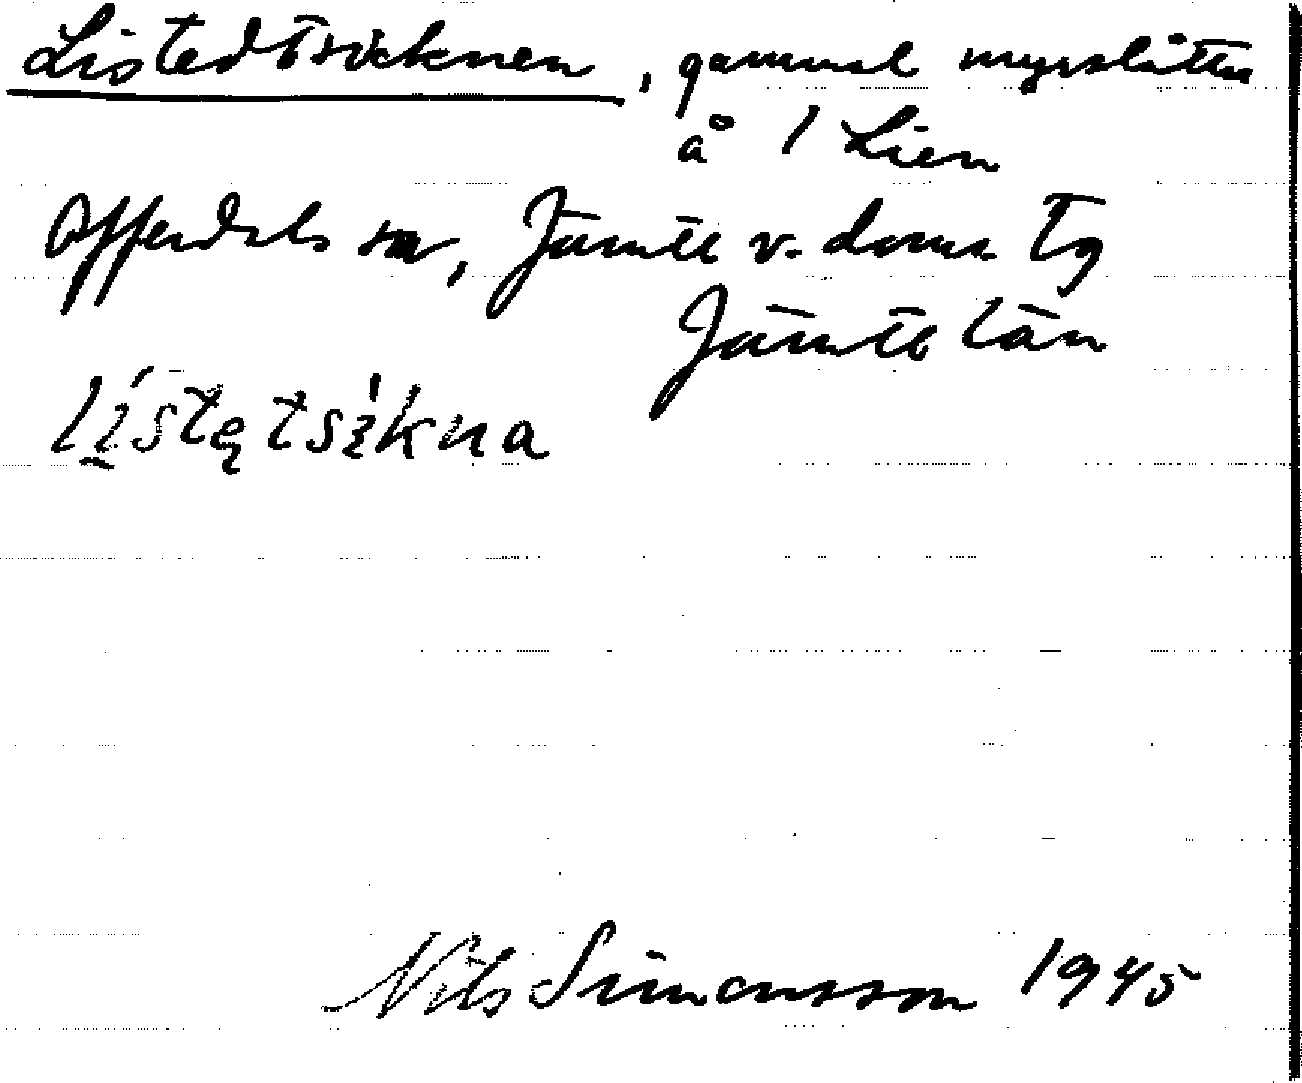 Listedtsicknen, gammal myrslåtter
å 1 Lien
Offerdals sn, Jämtl v. doms. Tg
Jämtl län
lístętsikna
Nils Simonsson 1945